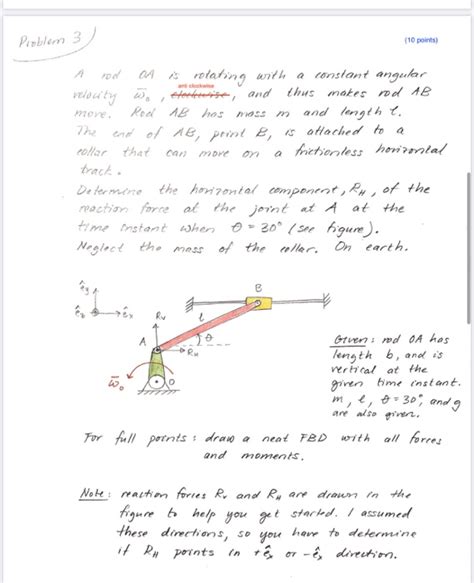 Problem 3
(10 points)
A rod OA is rotating with a constant angular
anti clockwise
velocity ω̄₀ , clockwise, and thus makes rod AB
move. Rod AB has mass m and length l.
The end of AB, point B, is attached to a
collar that can move on a frictionless horizontal
track.
Determine the horizontal component, R_H, of the
reaction force at the joint at A at the
time instant when θ = 30° (see figure).
Neglect the mass of the collar. On earth.
ê_y
ê_z
ê_x
B
R_V
l
A
θ
R_H
ω̄₀
O
Given: rod OA has
length b, and is
vertical at the
given time instant.
m, l, θ = 30°, and g
are also given.
For full points: draw a neat FBD with all forces
and moments.
Note: reaction forces R_V and R_H are drawn in the
figure to help you get started. I assumed
these directions, so you have to determine
if R_H points in +ê_x or -ê_x direction.